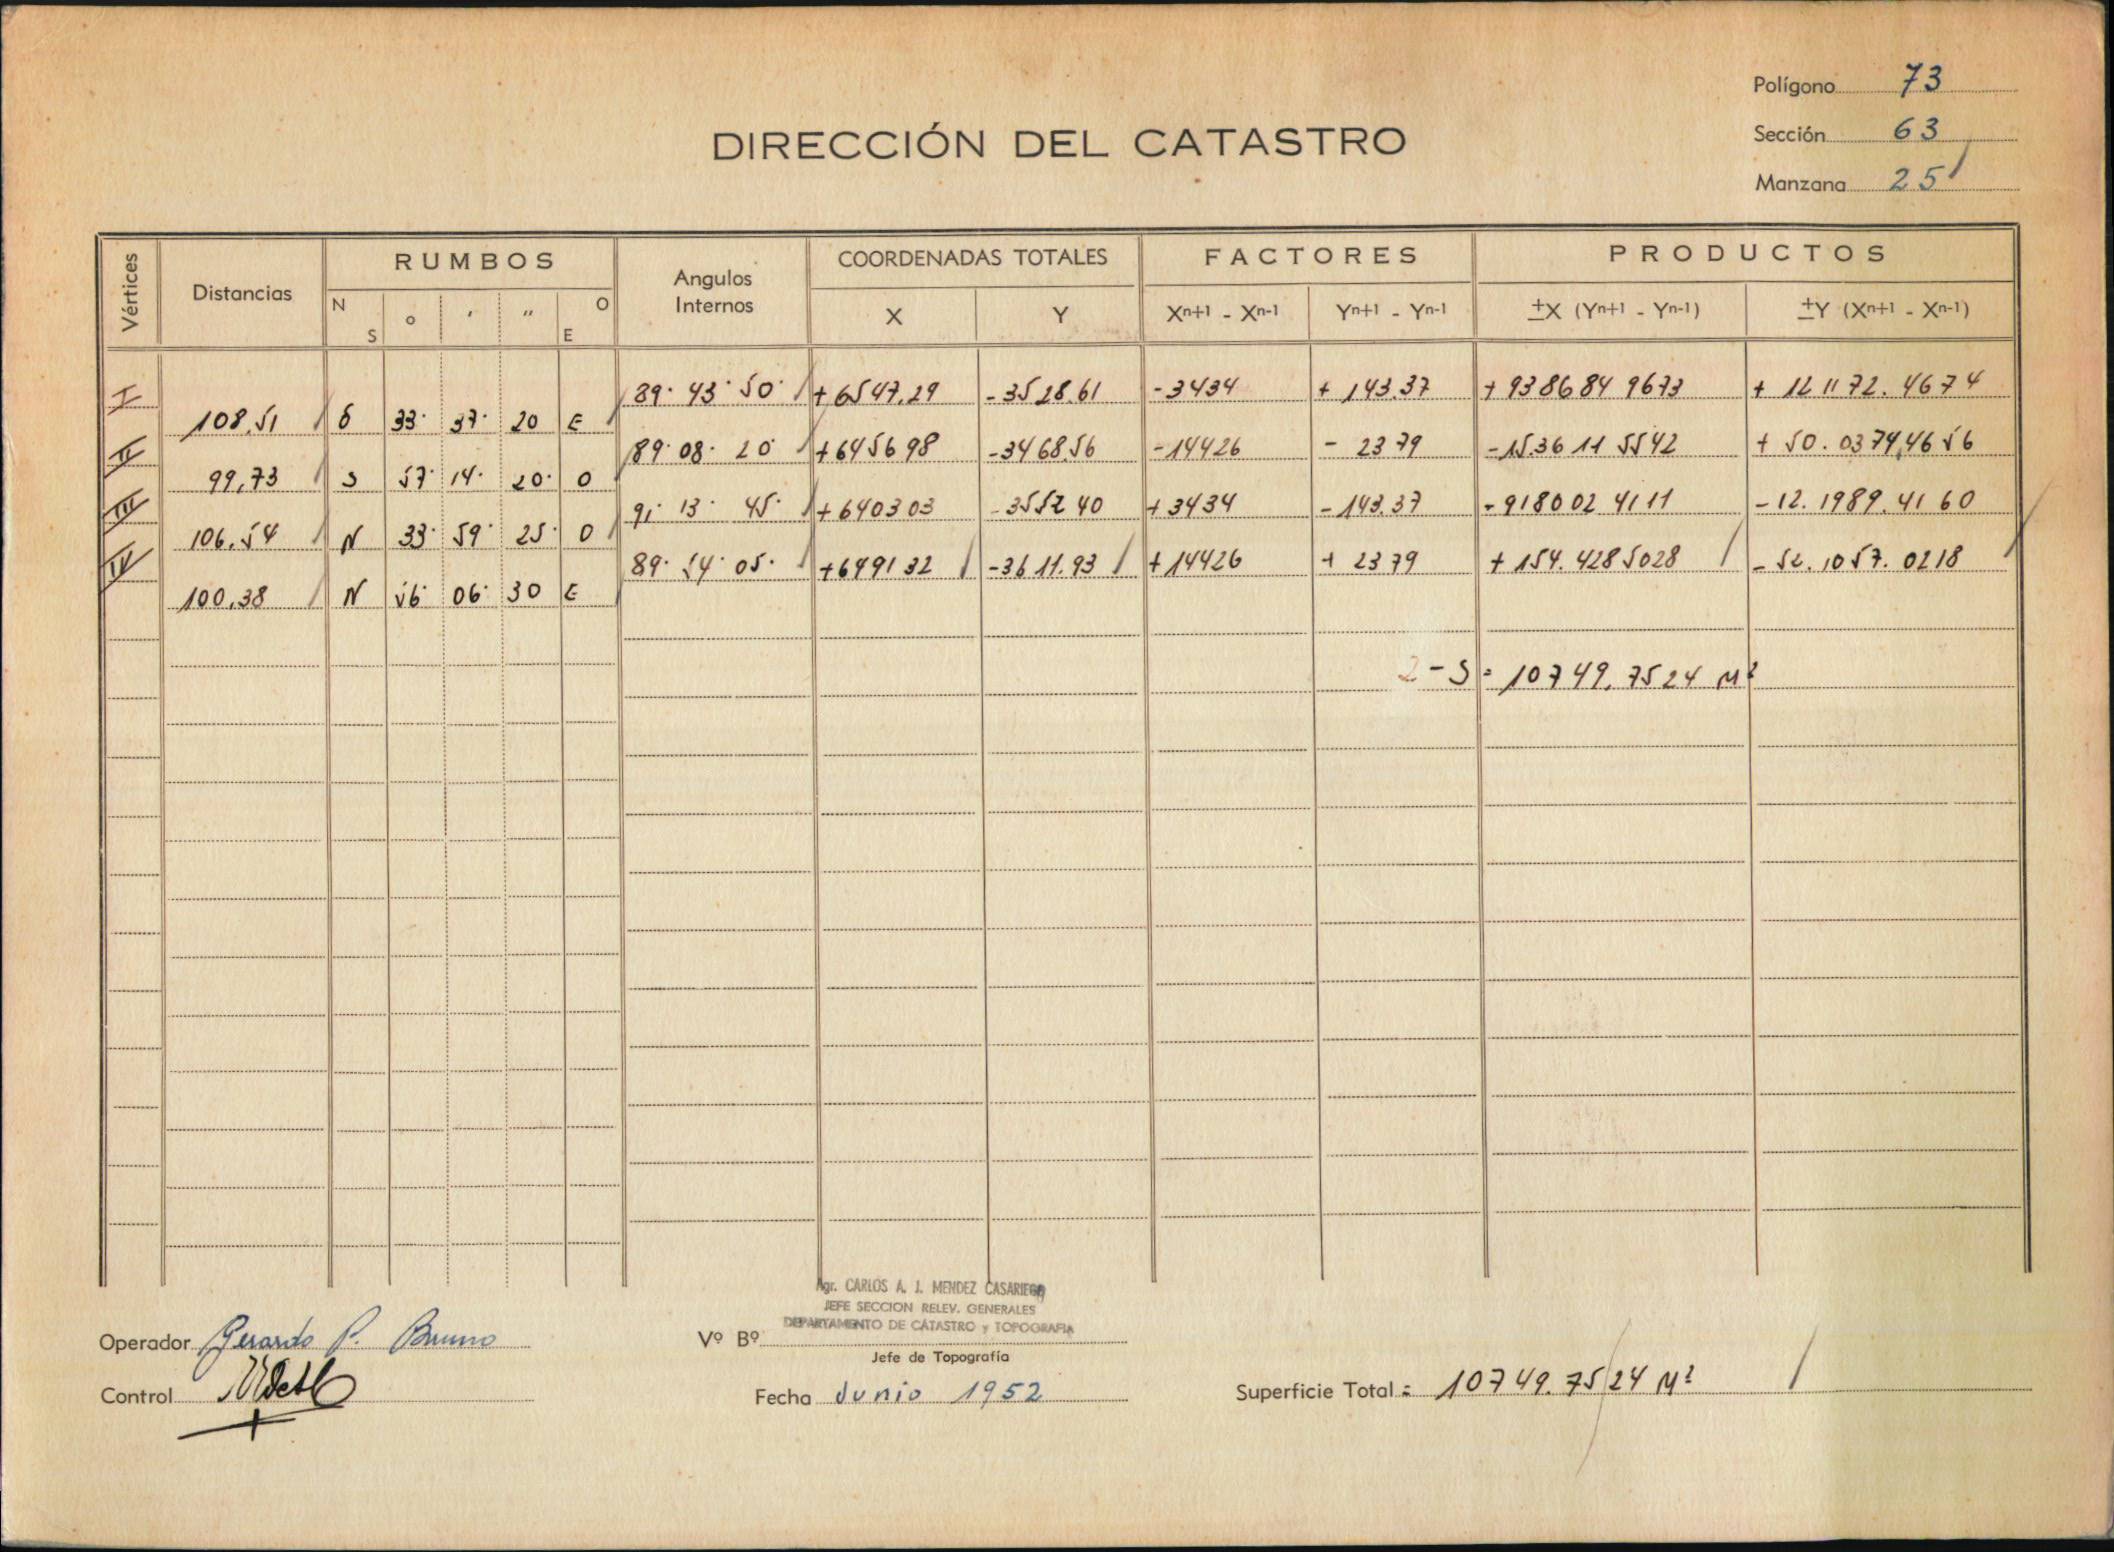 Polígono 73
DIRECCIÓN DEL CATASTRO
Sección 63
Manzana 25
Vértices Distancias RUMBOS Angulos Internos COORDENADAS TOTALES FACTORES PRODUCTOS
N S o ' " O E X Y Xn+1 - Xn-1 Yn+1 - Yn-1 ±X (Yn+1 - Yn-1) ±Y (Xn+1 - Xn-1)
I 89· 43· 50· +6547.29 -3528.61 -3434 + 143.37 + 938684 9673 + 121172.4674
108.51 S 33· 37· 20 E
II 89· 08· 20 +645698 -3468.56 -14426 - 2379 -15.3611 5542 + 50.0374,4656
99,73 S 57· 14· 20· O
III 91· 13· 45· +640303 -3552 40 +3434 -143.37 -918002 4111 -12.1989.4160
106.54 N 33· 59· 25· O
IV 89· 54· 05· +649132 -3611.93 +14426 + 2379 + 154.4285028 -52.1057.0218
100,38 N 56· 06· 30 E
2-S = 10749.7524 M²
Agr. CARLOS A. J. MENDEZ CASARIEGO
JEFE SECCION RELEV. GENERALES
DEPARTAMENTO DE CATASTRO y TOPOGRAFIA
Operador Gerardo P. Bruno
Vº Bº
Jefe de Topografía
Control
Fecha Junio 1952
Superficie Total = 10749.7524 M²